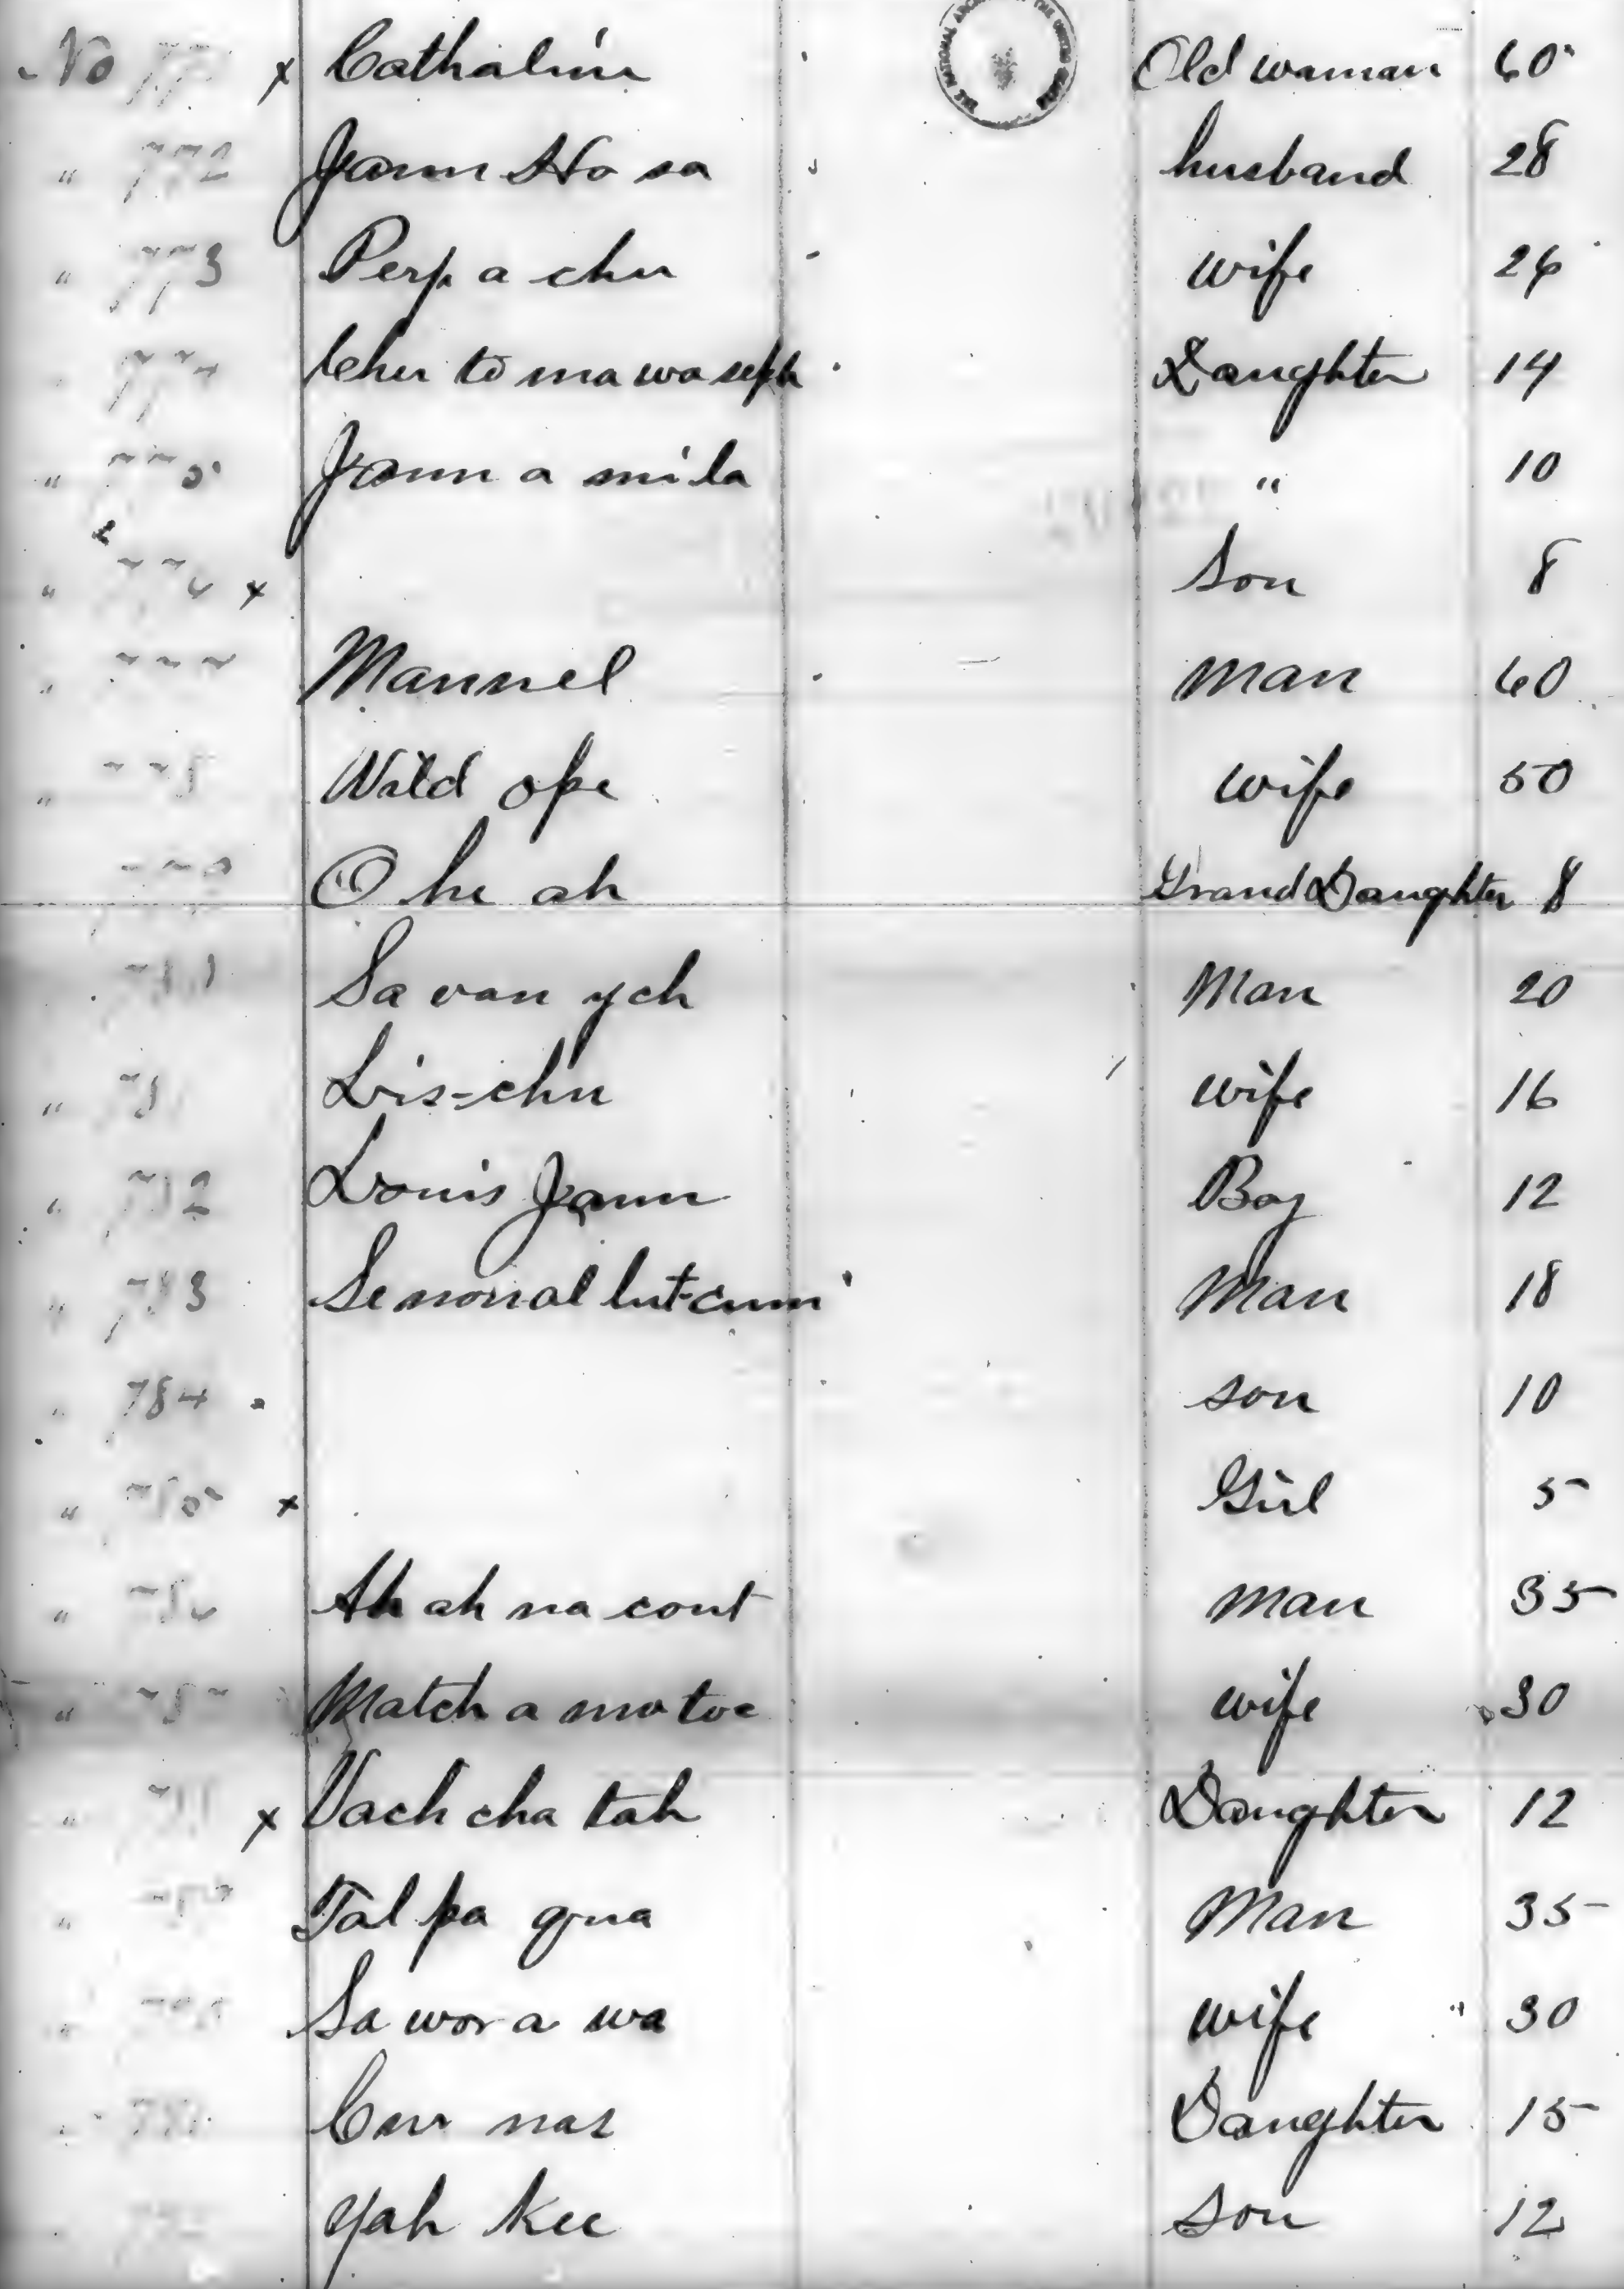 No 77 x Cathalina Old woman 60
" 772 Juan Ho sa husband 28
" 773 Perp a chu wife 26
" 774 Daughter 14
" 775 Juan a mi la " 10
" 776 x Son 8
" 777 Manuel Man 60
" 778 Wild ope wife 50
779 O he ah Grand Daughter 8
780 Sa van ych Man 20
" 781 Lis-chu wife 16
" 782 Louis Juan Boy 12
" 783 Man 18
" 784 son 10
" 785 x Girl 5
" 786 Ah ah na cout man 35
" 787 Match a mo toe wife 30
" 788 x Vach cha tah Daughter 12
" 789 Tal pa Man 35
Sa wor a wa wife " 30
nas Daughter 15
Yah Kee Son 12